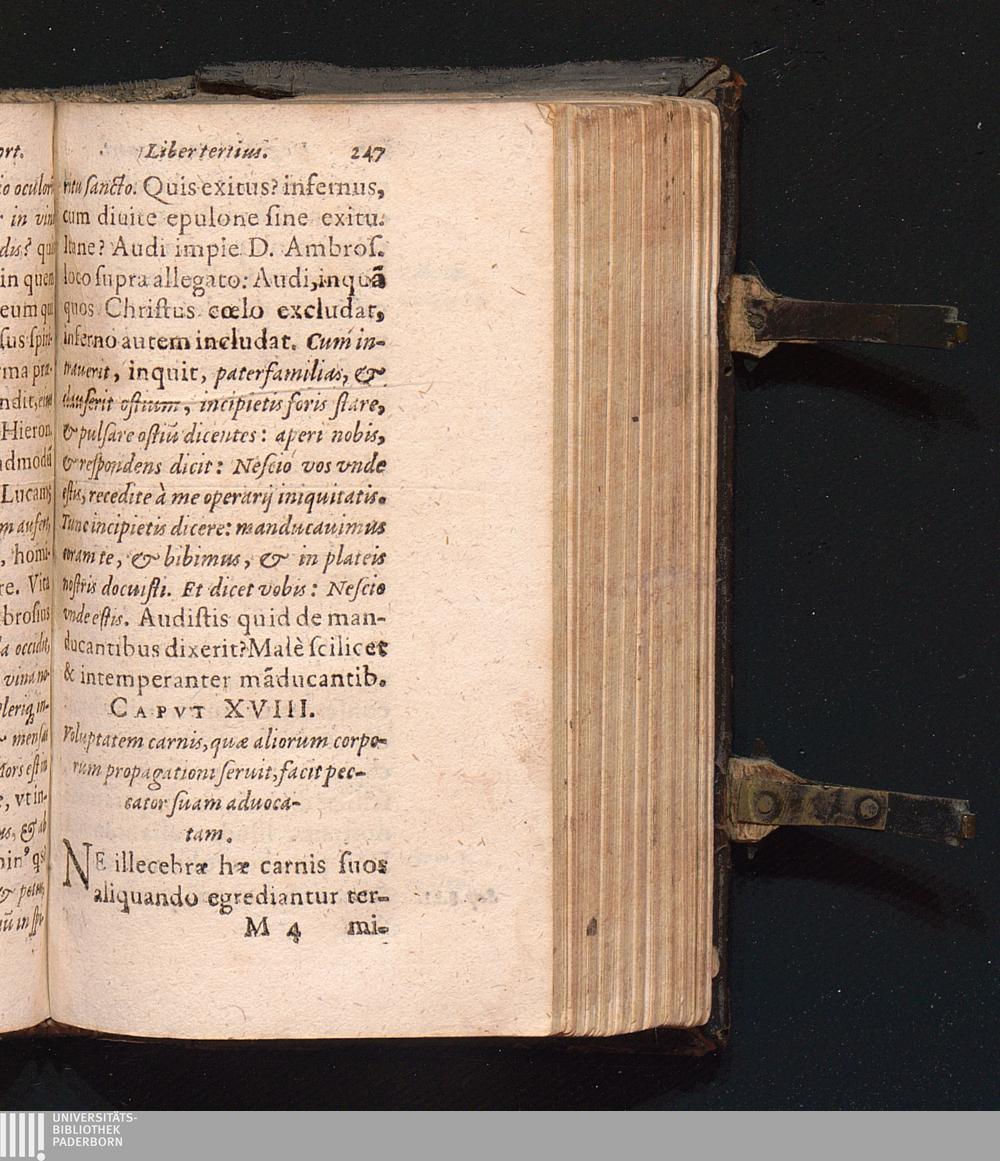 ort.
io oculor
r in vin
dis? qu
in quem
eum qu
sus spiri-
ma præ-
ndit, eius
Hieron.
admodū
Lucam
m aufert,
, homi-
re. Vita
brosius
la occidit,
vina no-
pleriq; in-
mensa
Mors est in
e, vt in-
us, & ab
in qͣ
& petet,
ū in spi-
Liber tertius. 247
ritu sancto. Quis exitus? infernus,
cum diuite epulone sine exitu.
Itane? Audi impie D. Ambros.
loco supra allegato: Audi, inquā
quos Christus cœlo excludat,
inferno autem includat. Cum in-
trauerit, inquit, paterfamilias, &
clauserit ostium, incipietis foris stare,
& pulsare ostiū dicentes: aperi nobis,
& respondens dicit: Nescio vos vnde
estis, recedite à me operarij iniquitatis.
Tunc incipietis dicere: manducauimus
coram te, & bibimus, & in plateis
nostris docuisti. Et dicet vobis: Nescio
vnde estis. Audistis quid de man-
ducantibus dixerit? Malè scilicet
& intemperanter māducantib.
CAPVT XVIII.
Voluptatem carnis, quæ aliorum corpo-
rum propagationi seruit, facit pec-
cator suam aduoca-
tam.
NE illecebræ hæ carnis suos
aliquando egrediantur ter-
M 4 mi-
UNIVERSITÄTS-
BIBLIOTHEK
PADERBORN